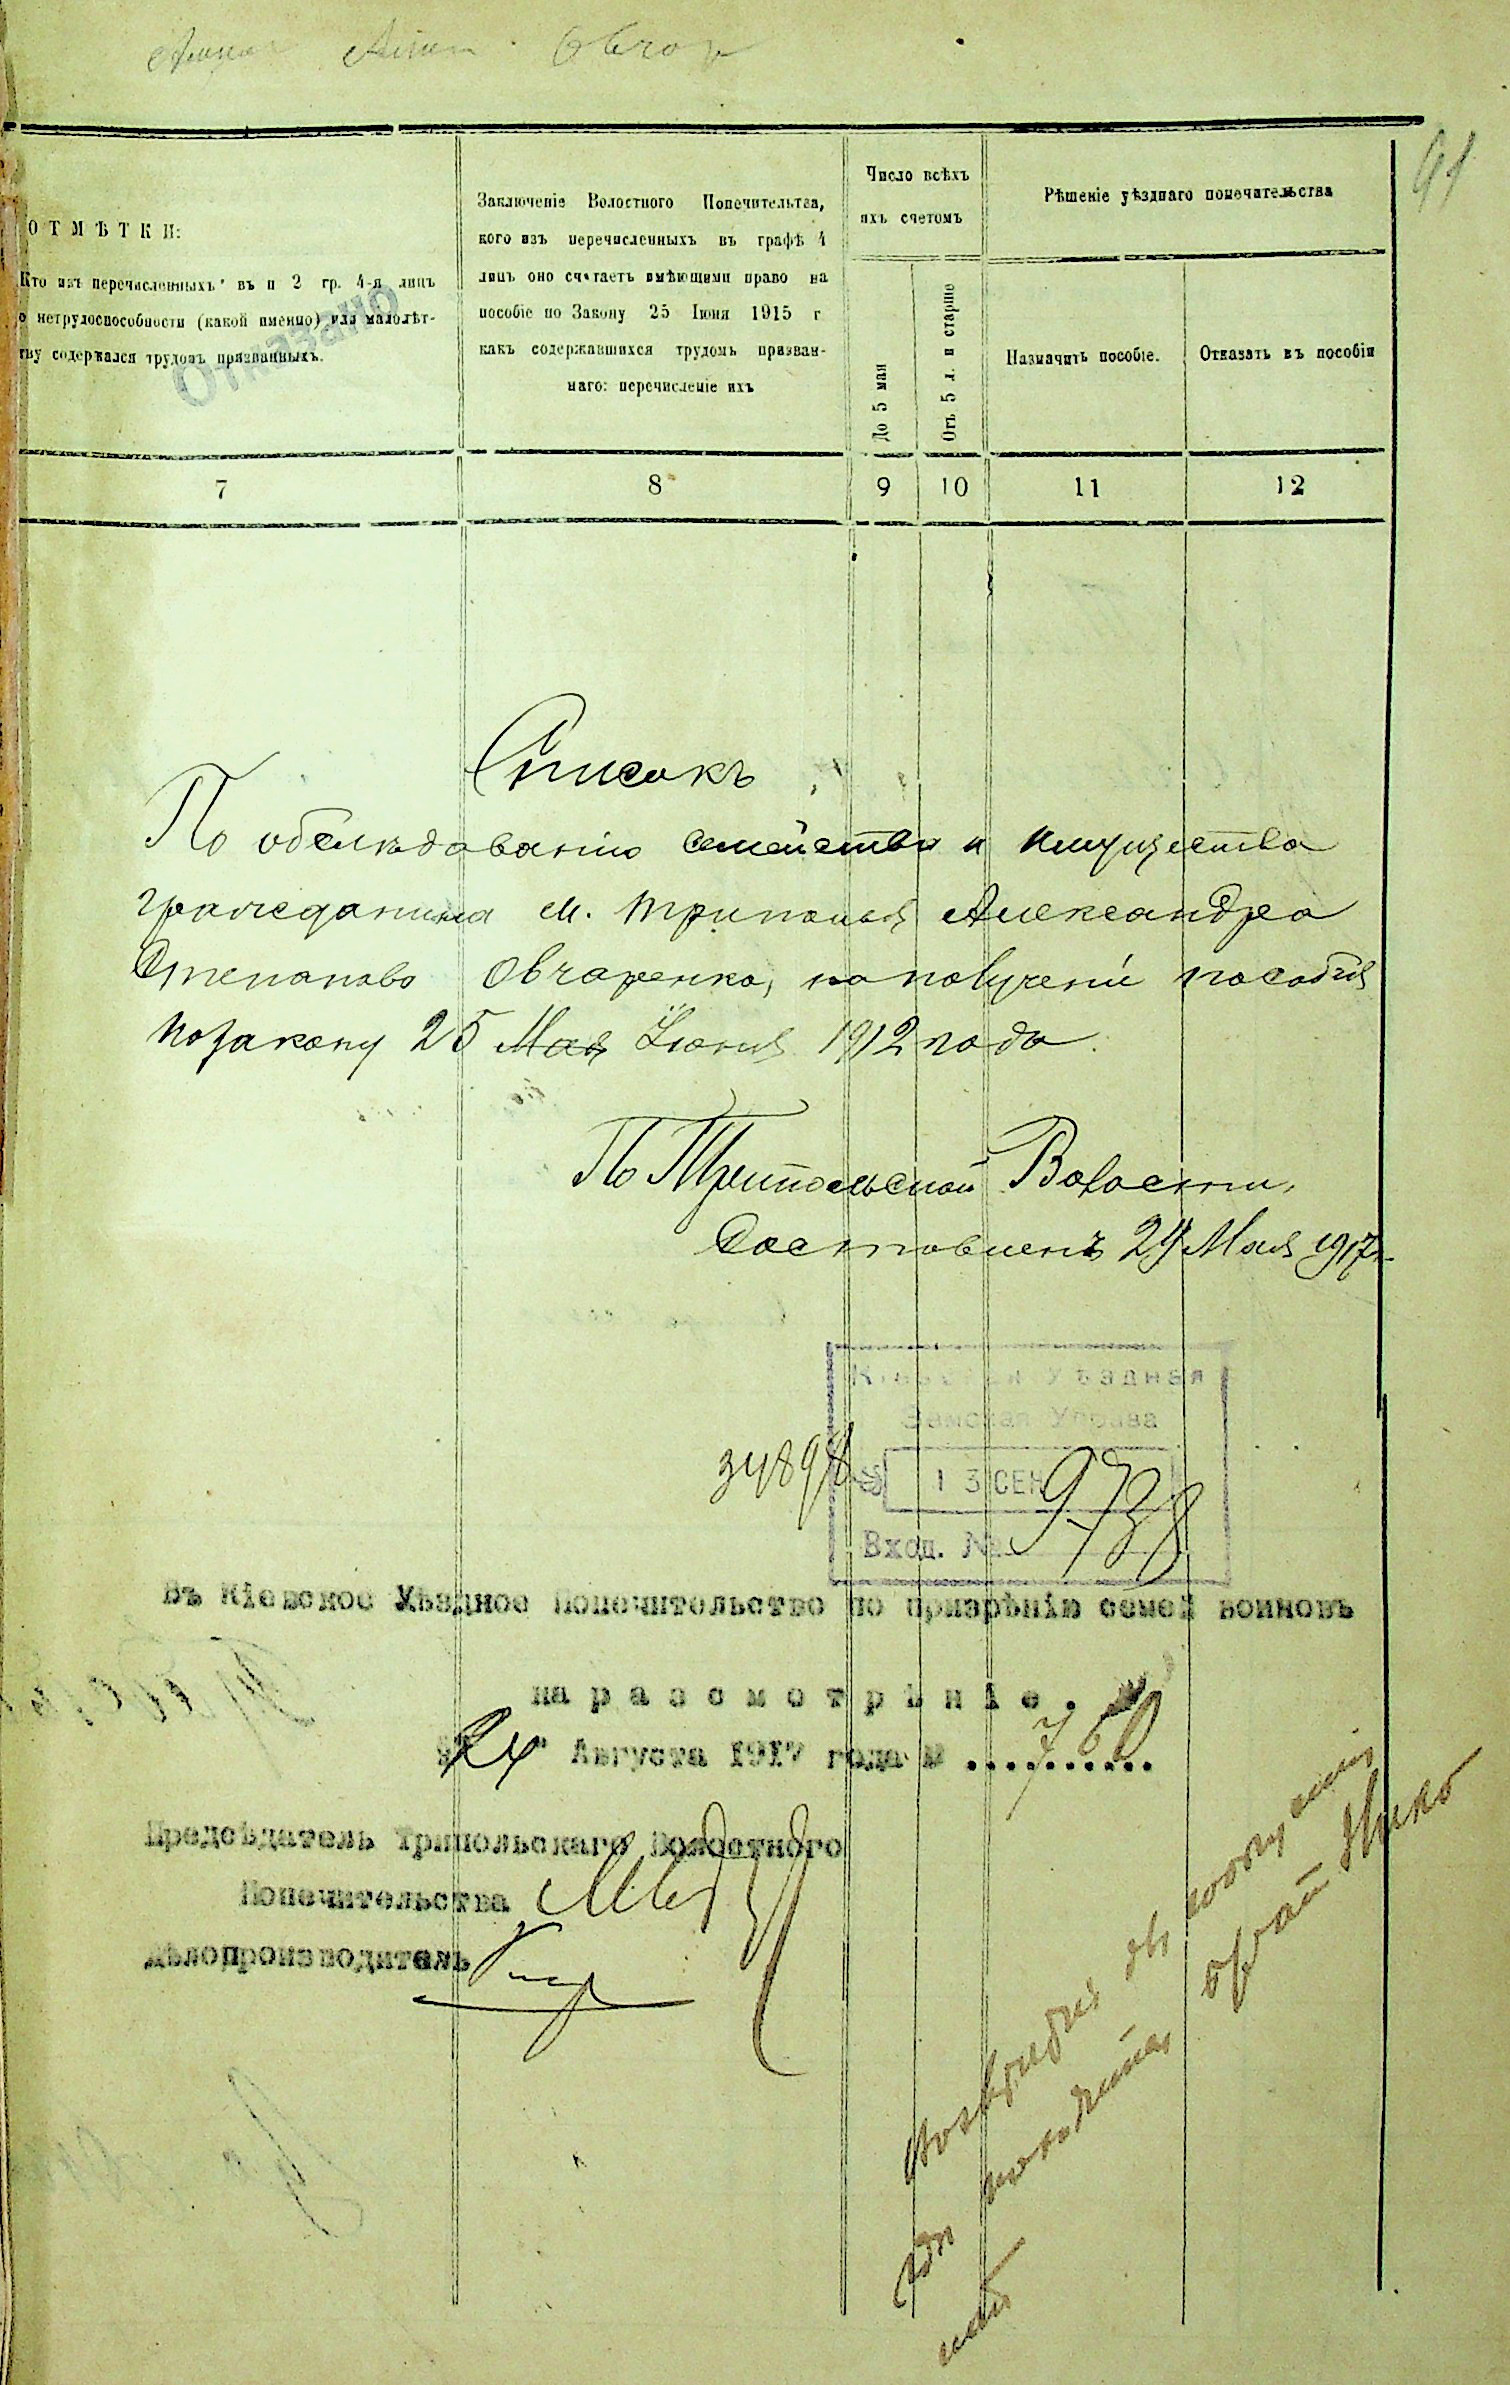 91
ОТМѢТКИ:
Кто изъ перечисленныхъ въ п 2 гр. 4-я лицъ
о нетрудоспособности (какой именно) или малолѣт-
тву содержался трудомъ призванныхъ.
Отказано
Заключеніе Волостного Попечительтва,
кого изъ перечисленныхъ въ графѣ 4
лицъ оно считаетъ имѣющими право на
пособіе по Закону 25 Іюня 1915 г
какъ содержавшихся трудомъ призван-
наго: перечисленіе ихъ
Число всѣхъ
ихъ счетомъ
До 5 мая
Отъ 5 л. и старше
Рѣшеніе уѣзднаго попечительства
Назначить пособіе.
Отказать въ пособіи
7 8 9 10 11 12
Списокъ
По обслѣдованію семейства и имущества
гражданина м. Триполья Александра
Степанова Овчаренко, на получение пособія
по закону 25 Мая Іюня 1912 года.
По Трипольской Волости,
Составленъ 24 Мая 1917 г.
Кіевская Уѣздная
Земская Управа
13 СЕН
Вход. № 9738
34898
Въ Кіевское Уѣздное Попечительство по призрѣнію семей воиновъ
на разсмотрѣніе.
"24" Августа 1917 года № 760
Предсѣдатель Трипольскаго Волостного
Попечительства
Дѣлопроизводитель